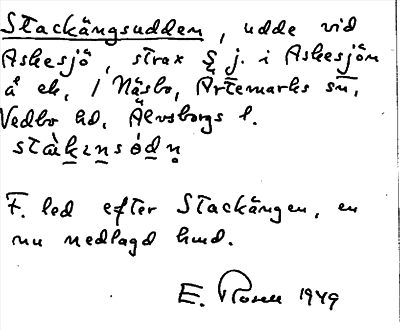 Stackängsudden, udde vid
Askesjö, strax S j. i Askesjön
å ek. 1 Näsbo, Ärtemarks sn,
Vedbo hd, Älvsborgs l.
F. led efter Stackängen, en
nu nedlagd lund.
E. Rosen 1949